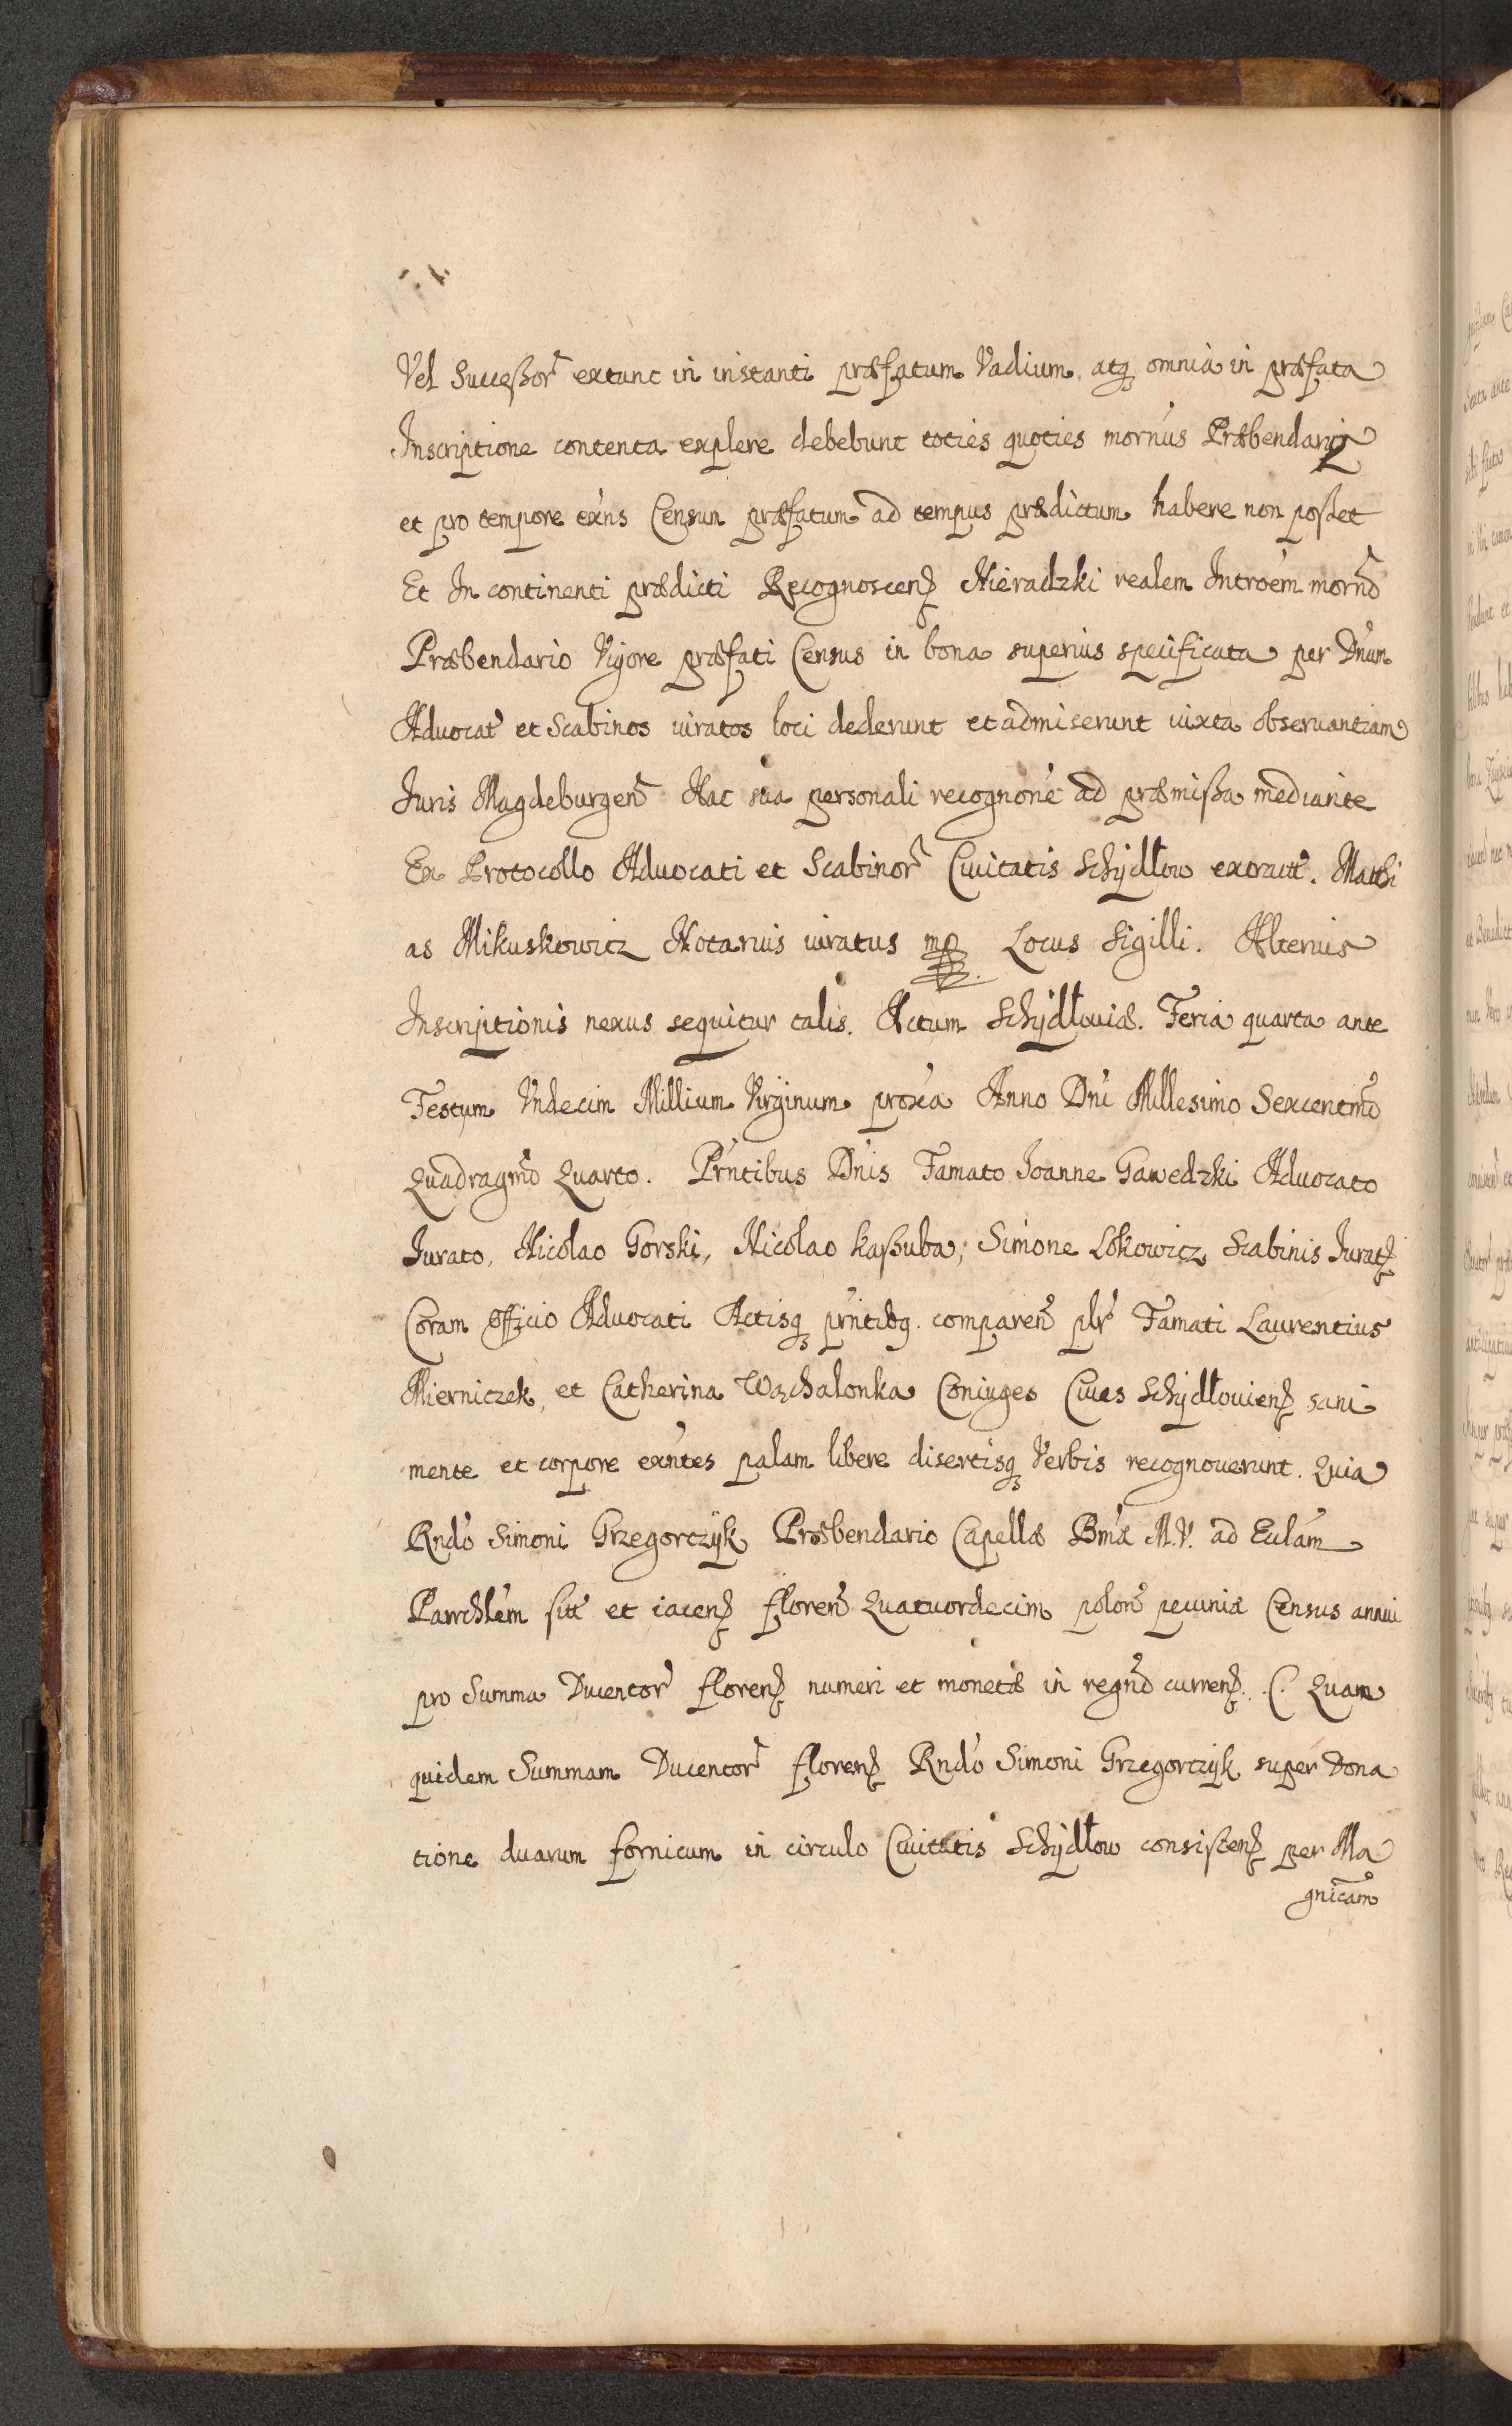 Vel Succeßor̃ extunc in instanti præfatum Vadium, atq́ꝫ omnia in præfata
Inscriptione contenta explere debebunt toties quoties mornús Præbendariꝰ
et pro tempore exńs Censun præfatum ad tempus prædictum habere non poßet
Et In continenti prædicti Recognoscenꝭ Nieradzki realem Introém morñd
Præbendario Vigore præfati Census in bona superius specificata per Dńum
Aduocat̃ et Scabinos iuratos loci dederunt et admiserunt iuxta obseruantiam
Iuris Magdeburgeñ Hac sua personali recognoné ad præmißa mediante
Ex Protocollo Aduocati et Scabinor̃ Ciuitatis Schÿdłow extractt̃. Mathi
as Mikuskowicz Notarius iuratus mp Locus Sigilli. Alterius
Inscriptionis nexus sequitur talis. Actum Schÿdłouiæ. Feria quarta ante
Festum Vndecim Millium Virginum proxía Anno Dńi Millesimo Sexcentm̃o
Quadragm̃o Quarto. Prńtibus Dńis Famato Ioanne Gawedzki Aduocato
Iurato, Nicolao Gorski, Nicolao Kaßuba, Simone Lokowicz Scabinis Iuratꝭ
Coram Officio Aduocati Actisqꝫ prńtibꝫ. compareñ plr̃ Famati Laurentius
Mierniczek, et Catherina Wąchalonka Coniuges Ciues Schÿdłouienꝭ sani
mente et corpore exńtes palam libere disertisqꝫ Verbis recognouerunt. Quia
Rndó Simoni Grzegorczÿk Præbendario Capellæ Bmǽ M.V. ad Eclám
Parrchlém sitt̃ et iacenꝭ floreñ Quatuordecim poloñ pecuniæ Census annui
pro Summa Ducentor̃ florenꝭ numeri et monetæ in regño currenꝭ. C. Quam
quidem Summam Ducentor̃ florenꝭ Rndó Simoni Grzegorczÿk super Dona
tione duarum fornicum in circulo Ciuitatis Schÿdłow consistenꝭ per Ma
gnicam̃